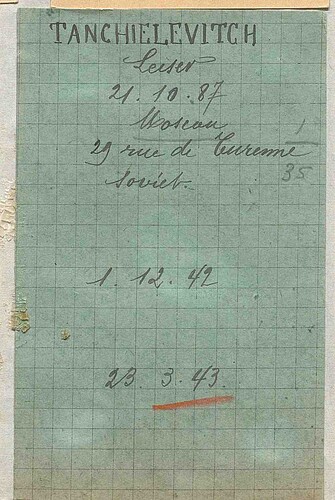 TANCHIELEVITCH
Leiser
21. 10. 87
Moscou
29 rue de Turenne
35
Soviet.
1. 12. 42
23. 3. 43.